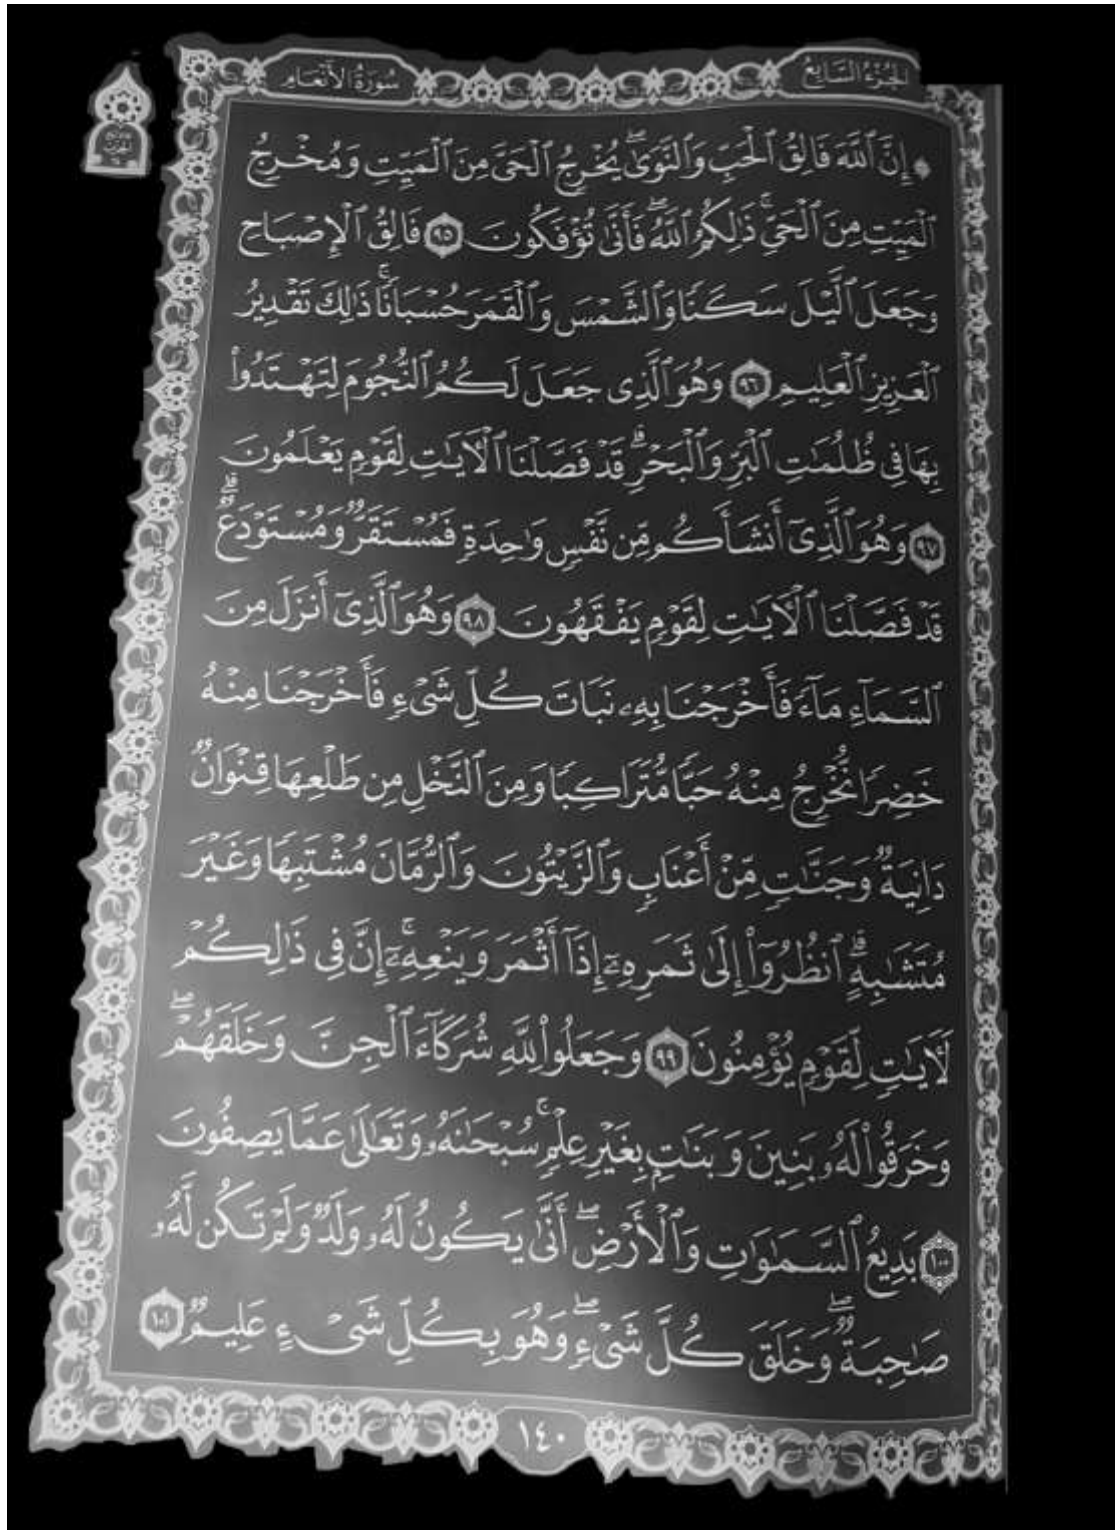 الجزء السابع
سورة الأنعام
۞ إِنَّ ٱللَّهَ فَالِقُ ٱلْحَبِّ وَٱلنَّوَىٰۖ يُخْرِجُ ٱلْحَىَّ مِنَ ٱلْمَيِّتِ وَمُخْرِجُ
ٱلْمَيِّتِ مِنَ ٱلْحَىِّۚ ذَٰلِكُمُ ٱللَّهُۖ فَأَنَّىٰ تُؤْفَكُونَ ٩٥ فَالِقُ ٱلْإِصْبَاحِ
وَجَعَلَ ٱلَّيْلَ سَكَنًا وَٱلشَّمْسَ وَٱلْقَمَرَ حُسْبَانًاۚ ذَٰلِكَ تَقْدِيرُ
ٱلْعَزِيزِ ٱلْعَلِيمِ ٩٦ وَهُوَ ٱلَّذِى جَعَلَ لَكُمُ ٱلنُّجُومَ لِتَهْتَدُوا۟
بِهَا فِى ظُلُمَـٰتِ ٱلْبَرِّ وَٱلْبَحْرِۗ قَدْ فَصَّلْنَا ٱلْـَٔايَـٰتِ لِقَوْمٍ يَعْلَمُونَ
٩٧ وَهُوَ ٱلَّذِىٓ أَنشَأَكُم مِّن نَّفْسٍ وَٰحِدَةٍ فَمُسْتَقَرٌّ وَمُسْتَوْدَعٌۗ
قَدْ فَصَّلْنَا ٱلْـَٔايَـٰتِ لِقَوْمٍ يَفْقَهُونَ ٩٨ وَهُوَ ٱلَّذِىٓ أَنزَلَ مِنَ
ٱلسَّمَآءِ مَآءً فَأَخْرَجْنَا بِهِۦ نَبَاتَ كُلِّ شَىْءٍ فَأَخْرَجْنَا مِنْهُ
خَضِرًا نُّخْرِجُ مِنْهُ حَبًّا مُّتَرَاكِبًا وَمِنَ ٱلنَّخْلِ مِن طَلْعِهَا قِنْوَانٌ
دَانِيَةٌ وَجَنَّـٰتٍ مِّنْ أَعْنَابٍ وَٱلزَّيْتُونَ وَٱلرُّمَّانَ مُشْتَبِهًا وَغَيْرَ
مُتَشَـٰبِهٍۗ ٱنظُرُوٓا۟ إِلَىٰ ثَمَرِهِۦٓ إِذَآ أَثْمَرَ وَيَنْعِهِۦٓۚ إِنَّ فِى ذَٰلِكُمْ
لَـَٔايَـٰتٍ لِّقَوْمٍ يُؤْمِنُونَ ٩٩ وَجَعَلُوا۟ لِلَّهِ شُرَكَآءَ ٱلْجِنَّ وَخَلَقَهُمْۖ
وَخَرَقُوا۟ لَهُۥ بَنِينَ وَبَنَـٰتٍۭ بِغَيْرِ عِلْمٍۚ سُبْحَـٰنَهُۥ وَتَعَـٰلَىٰ عَمَّا يَصِفُونَ
١٠٠ بَدِيعُ ٱلسَّمَـٰوَٰتِ وَٱلْأَرْضِۖ أَنَّىٰ يَكُونُ لَهُۥ وَلَدٌ وَلَمْ تَكُن لَّهُۥ
صَـٰحِبَةٌۖ وَخَلَقَ كُلَّ شَىْءٍۖ وَهُوَ بِكُلِّ شَىْءٍ عَلِيمٌ ١٠١
١٤٠